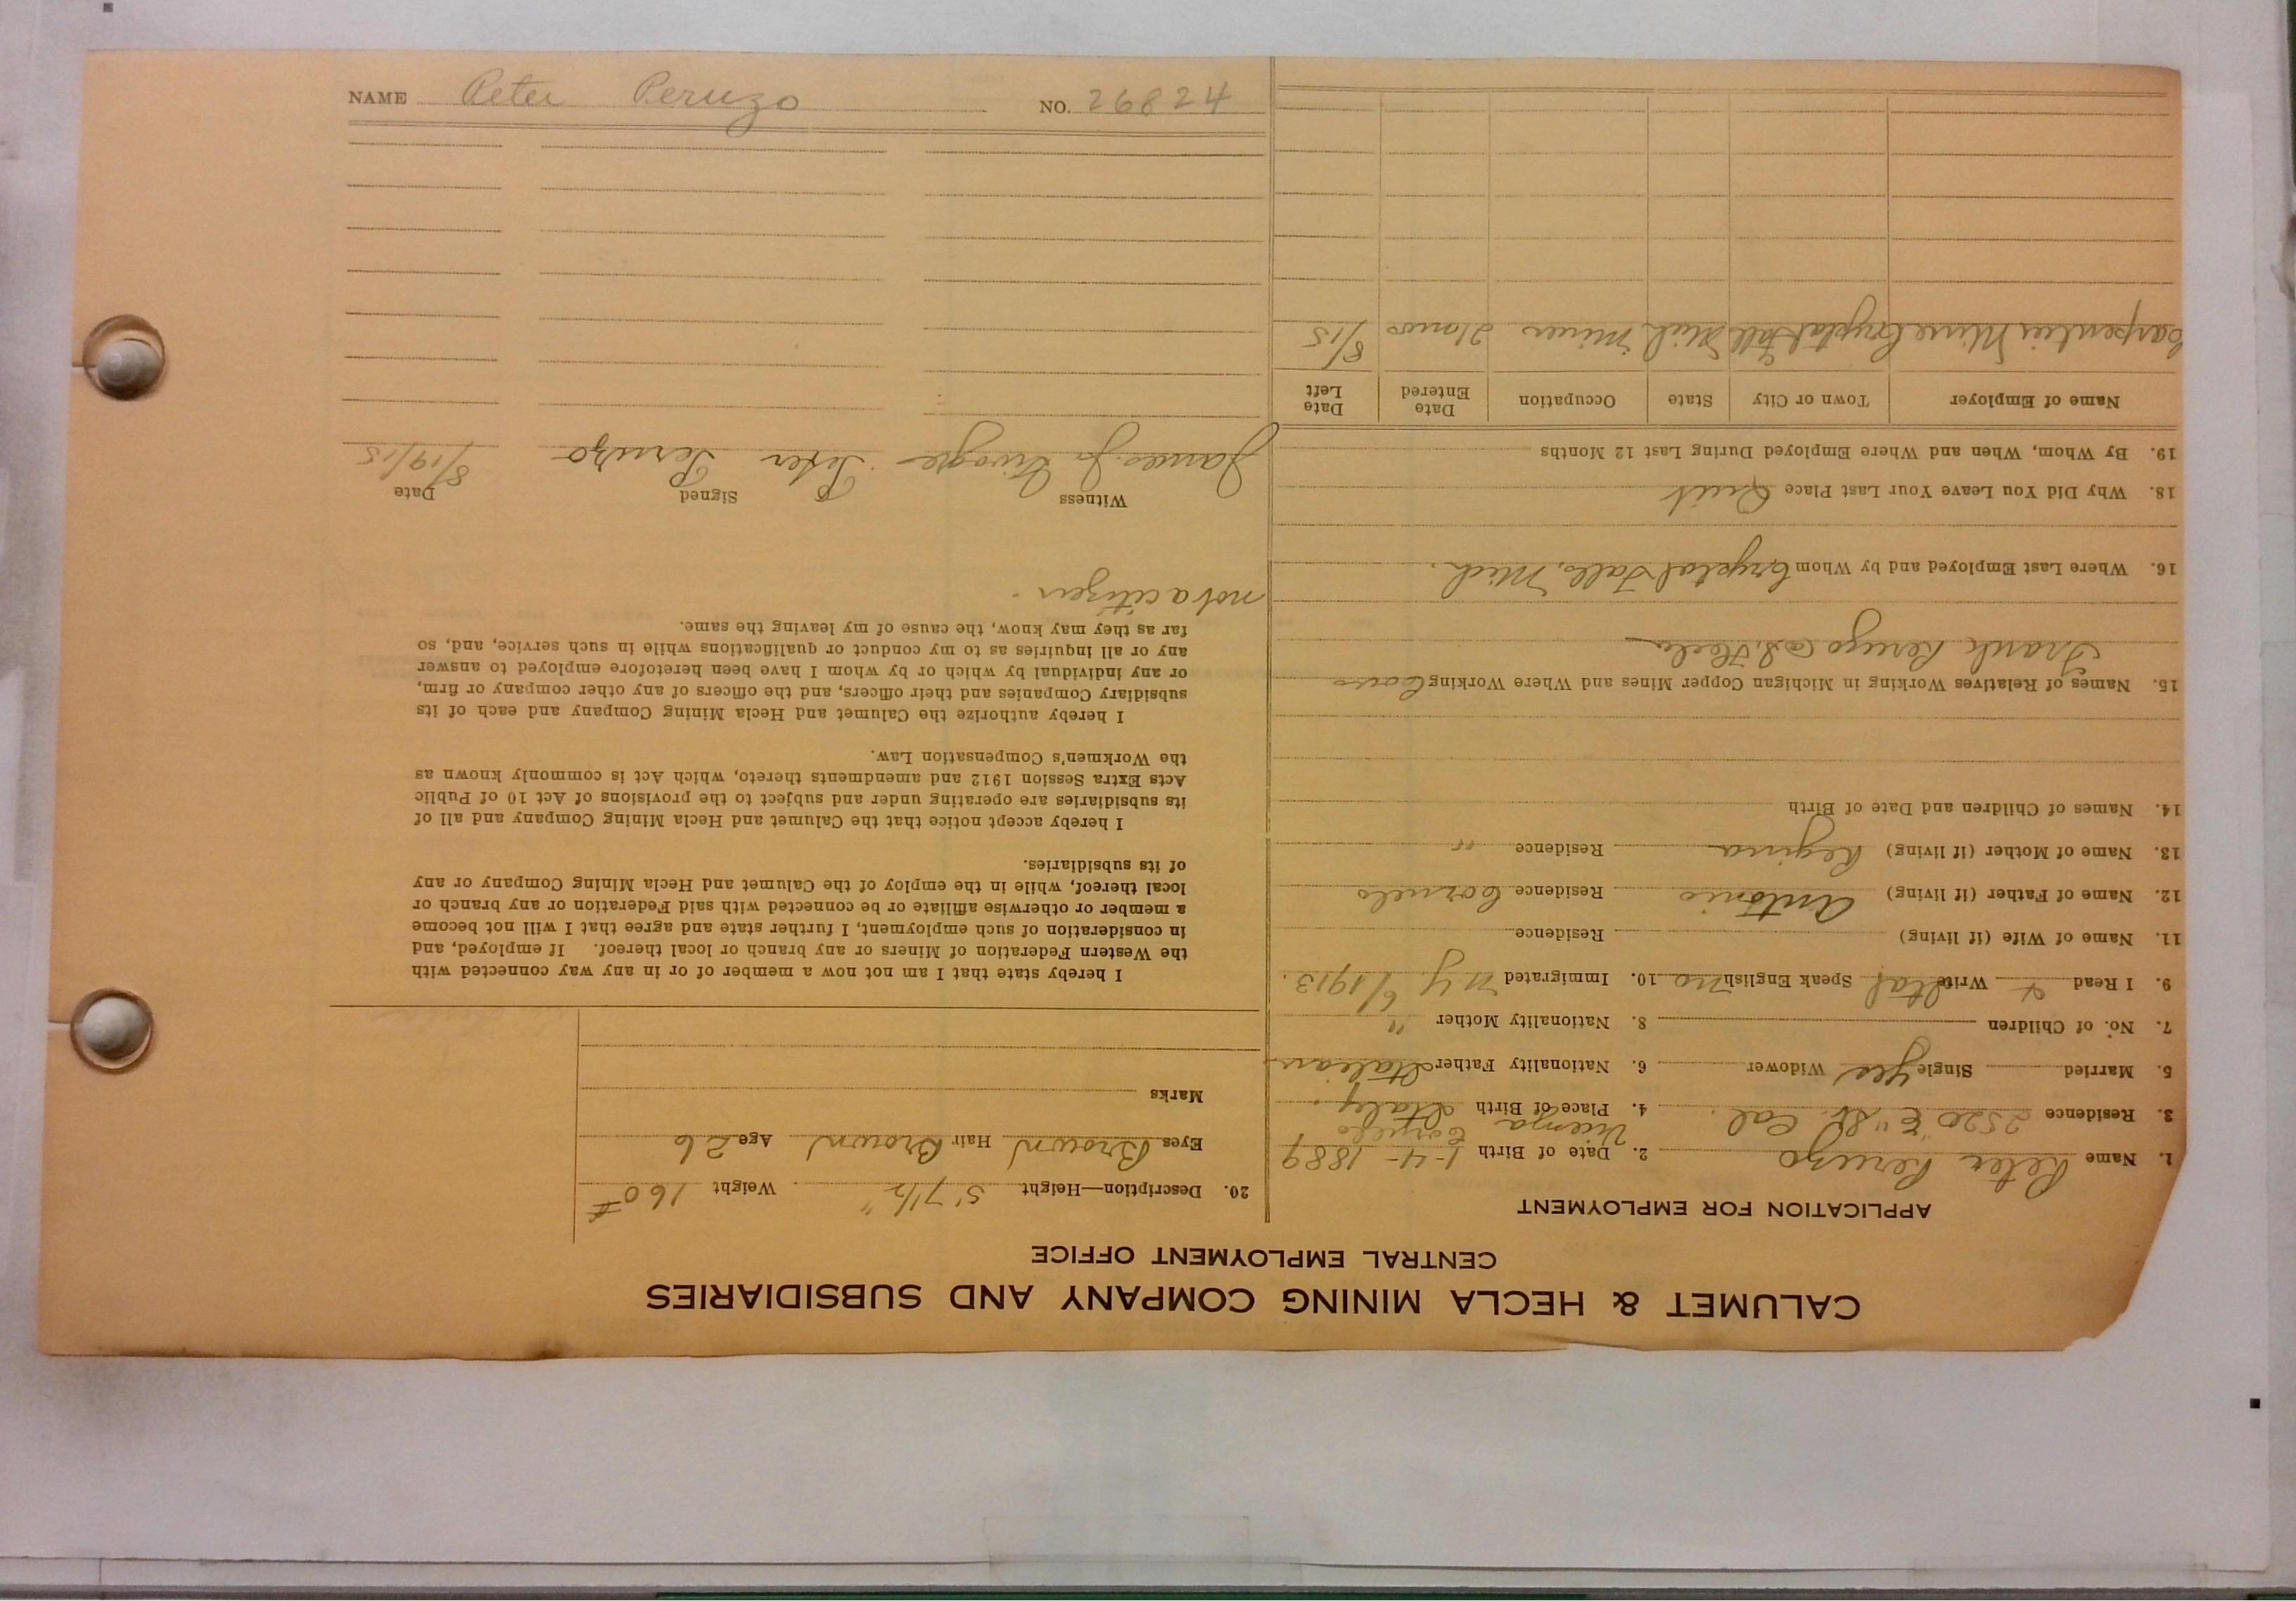 CALUMET & HECLA MINING COMPANY AND SUBSIDIARIES
CENTRAL EMPLOYMENT OFFICE
APPLICATION FOR EMPLOYMENT
1. Name Peter Peruzo 2. Date of Birth 1-4-1889
Vicenza Cornelo
3. Residence 2520 "E" St. Cal. 4. Place of Birth Italy.
5. Married Single yes Widower 6. Nationality Father Italian
7. No. of Children 8. Nationality Mother "
9. I Read & Write Ital Speak English no 10. Immigrated N.Y. 6/1913.
11. Name of Wife (if living) Residence
12. Name of Father (if living) Antonio Residence Cornelo
13. Name of Mother (if living) Regina Residence "
14. Names of Children and Date of Birth
15. Names of Relatives Working in Michigan Copper Mines and Where Working
Frank Peruzo Hecla
16. Where Last Employed and by Whom Crystal Falls, Mich.
18. Why Did You Leave Your Last Place Quit
19. By Whom, When and Where Employed During Last 12 Months
Name of Employer Town or City State Occupation Date Entered Date Left
Carpenter Mine Crystal Fall Mich Miner 8/15
20. Description—Height 5' 7 1/2" Weight 160 #
Eyes Brown Hair Brown Age 26
Marks
I hereby state that I am not now a member of or in any way connected with
the Western Federation of Miners or any branch or local thereof. If employed, and
in consideration of such employment, I further state and agree that I will not become
a member or otherwise affiliate or be connected with said Federation or any branch or
local thereof, while in the employ of the Calumet and Hecla Mining Company or any
of its subsidiaries.
I hereby accept notice that the Calumet and Hecla Mining Company and all of
its subsidiaries are operating under and subject to the provisions of Act 10 of Public
Acts Extra Session 1912 and amendments thereto, which Act is commonly known as
the Workmen's Compensation Law.
I hereby authorize the Calumet and Hecla Mining Company and each of its
subsidiary Companies and their officers, and the officers of any other company or firm,
or any individual by which or by whom I have been heretofore employed to answer
any or all inquiries as to my conduct or qualifications while in such service, and, so
far as they may know, the cause of my leaving the same.
not a citizen.
Witness Signed Date
James Peter Peruzo 8/19/15
NAME Peter Peruzo NO. 26824